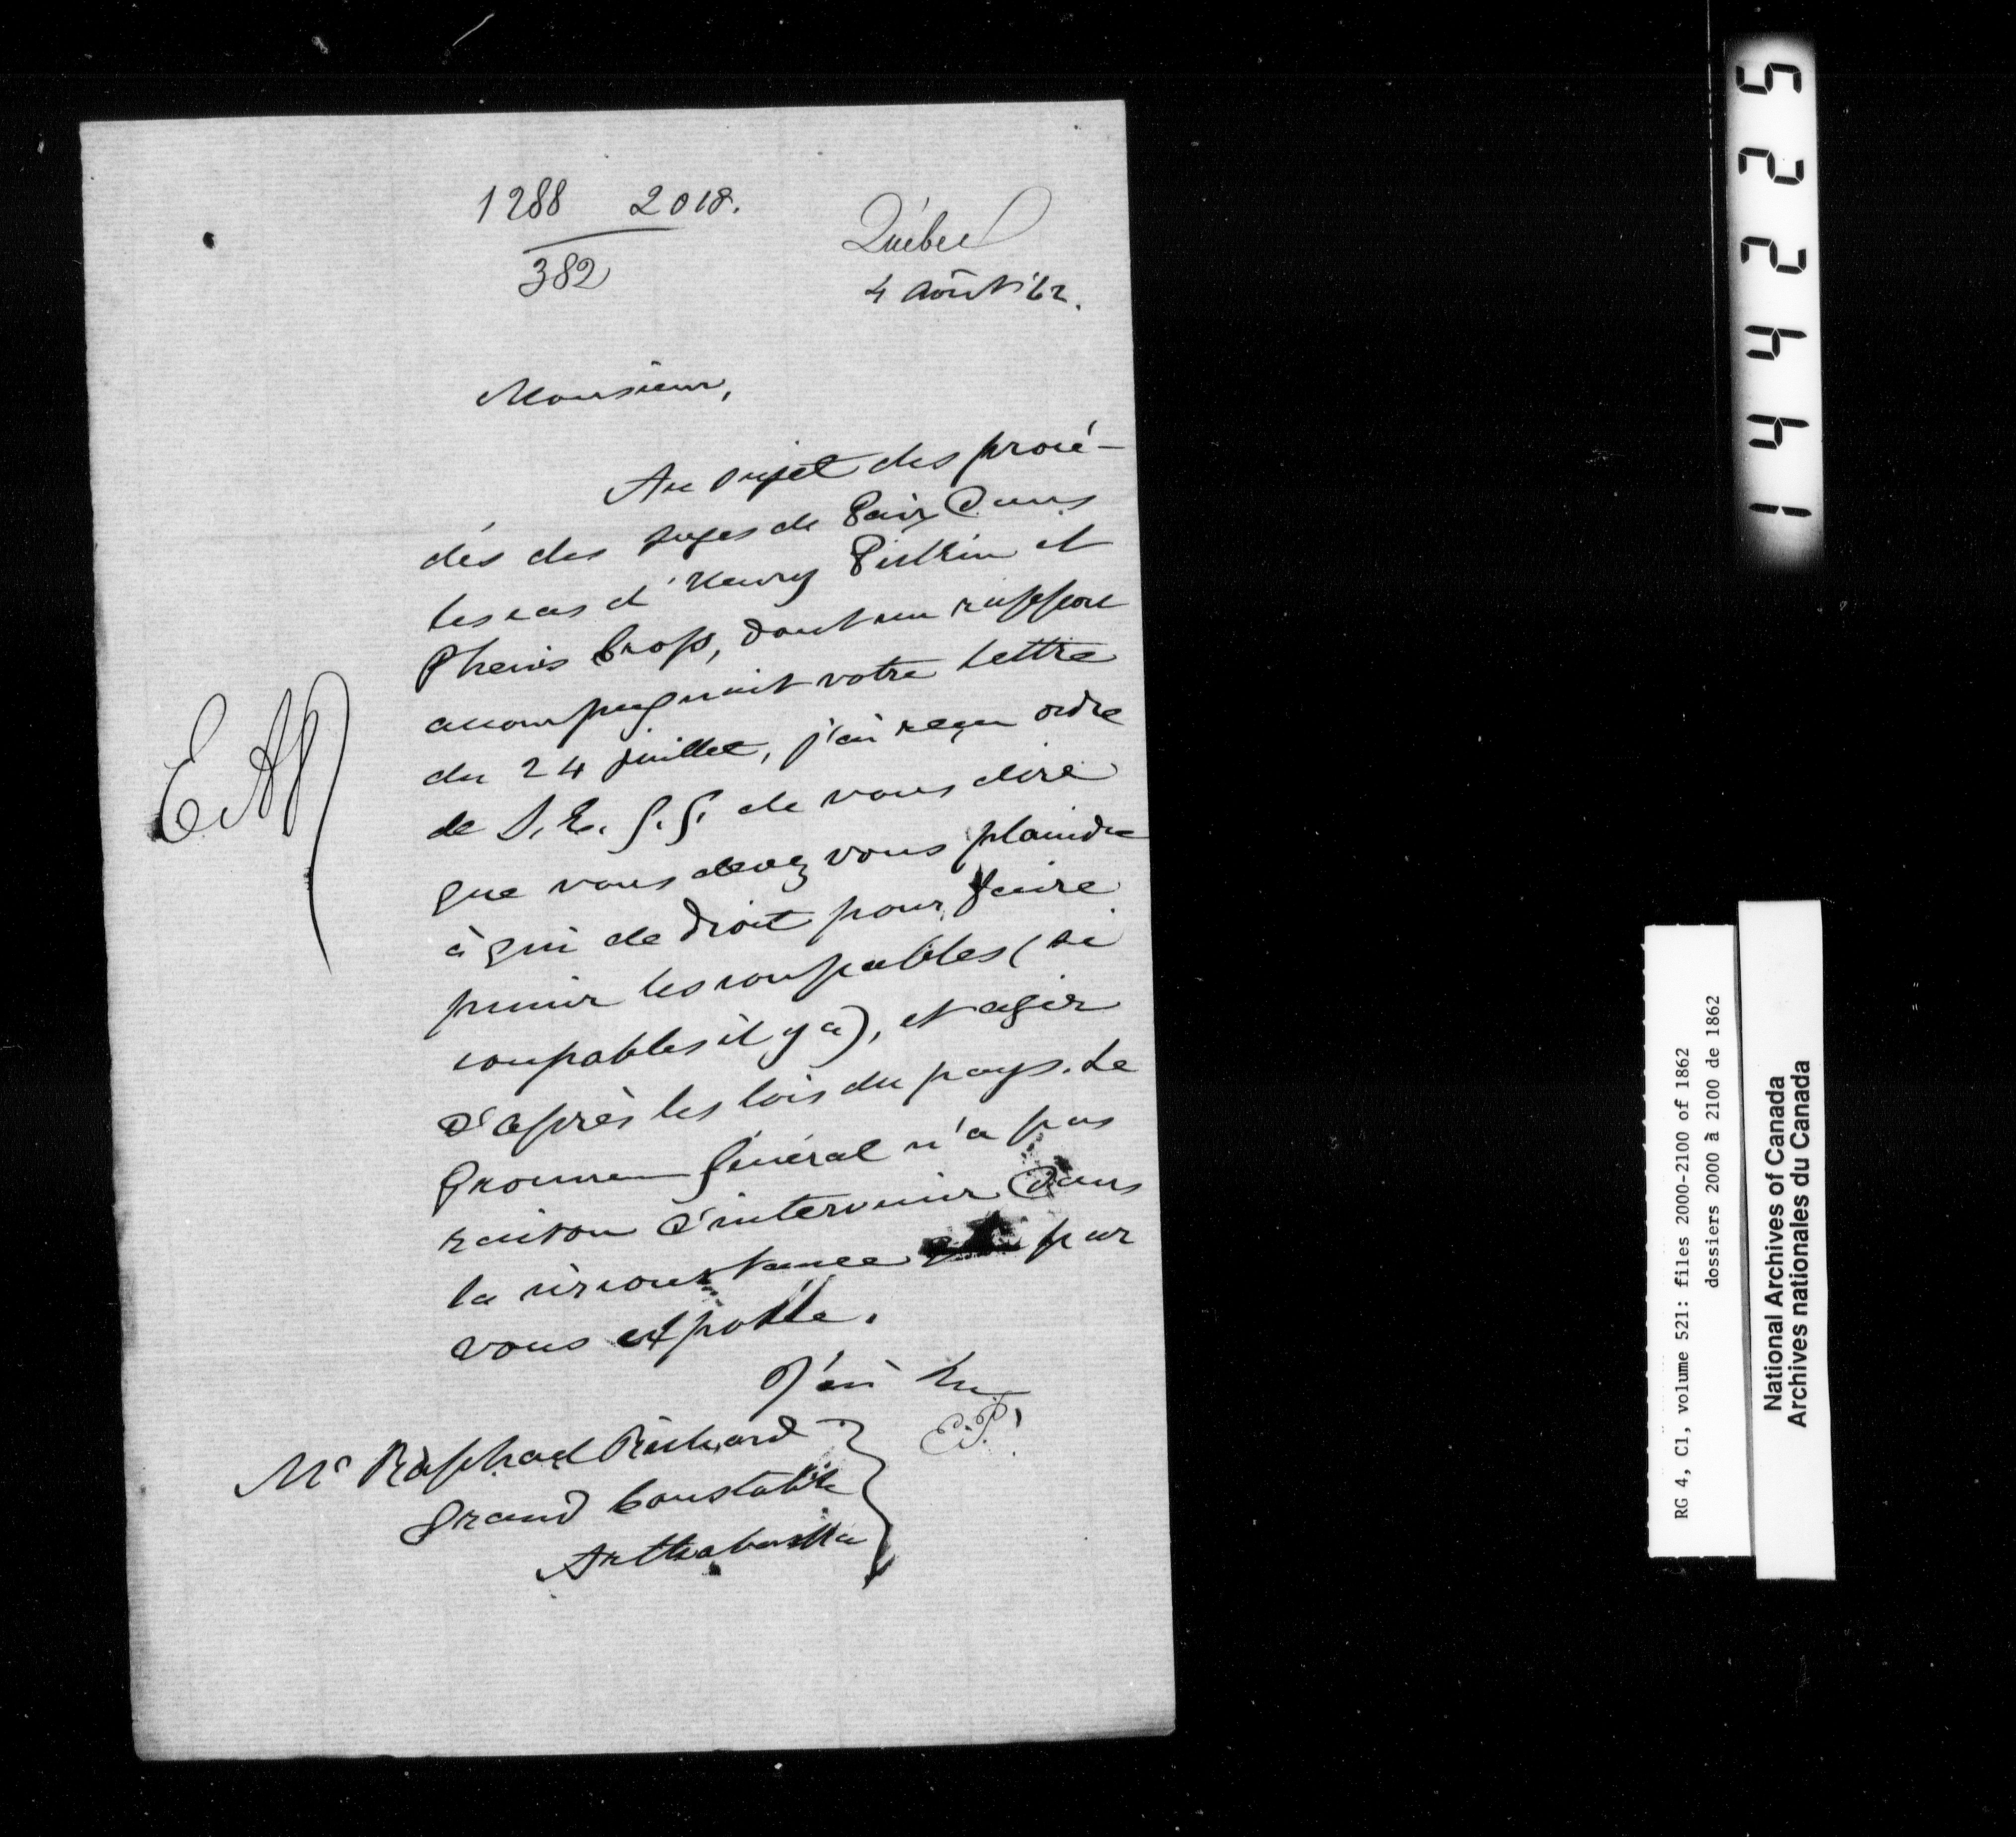 1288 2018.
382
Québec
4 Août '62.
Monsieur,
Au sujet des procé-
dés des Juges de Paix dans
les cas d'Henry Pitkin et
Cross, dont un rapport
accompagnait votre lettre
du 24 juillet, j'ai reçu ordre
de S. E. G. G. de vous dire
que vous devez vous plaindre
à qui de droit pour faire
punir les coupables (si
coupables il y a), et agir
d'après les lois du pays. Le
Gouverneur Général n'a pas
raison d'intervenir dans
la circonstance par
vous exposée.
J'ai
E.P.
Mr Raphael Richard
Grand Constable
Arthabaska
144225
RG 4, C1, volume 521: files 2000-2100 of 1862
dossiers 2000 à 2100 de 1862
National Archives of Canada
Archives nationales du Canada